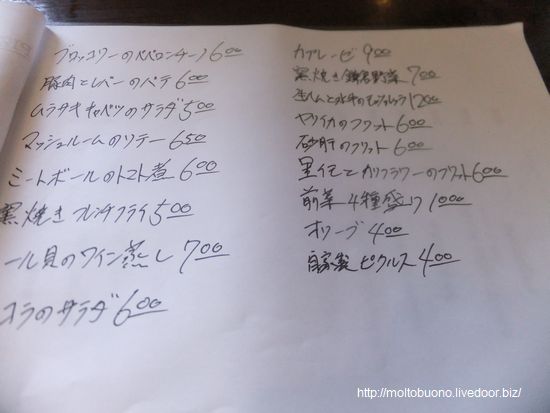 ブロッコリーのペペロンチーノ 600
豚肉とレバーのパテ 600
ムラサキキャベツのサラダ 500
マッシュルームのソテー 650
ミートボールのトマト煮 600
窯焼きフレンチフライ 500
ール貝のワイン蒸し 700
コラのサラダ 600
カプレーゼ 900
窯焼き鎌倉野菜 700
生ハムと水牛のモッツァレラ 1200
ヤリイカのフリット 600
砂肝のフリット 600
里芋とカリフラワーのフリット 600
前菜4種盛り 1000
オリーブ 400
自家製ピクルス 400
http://moltobuono.livedoor.biz/